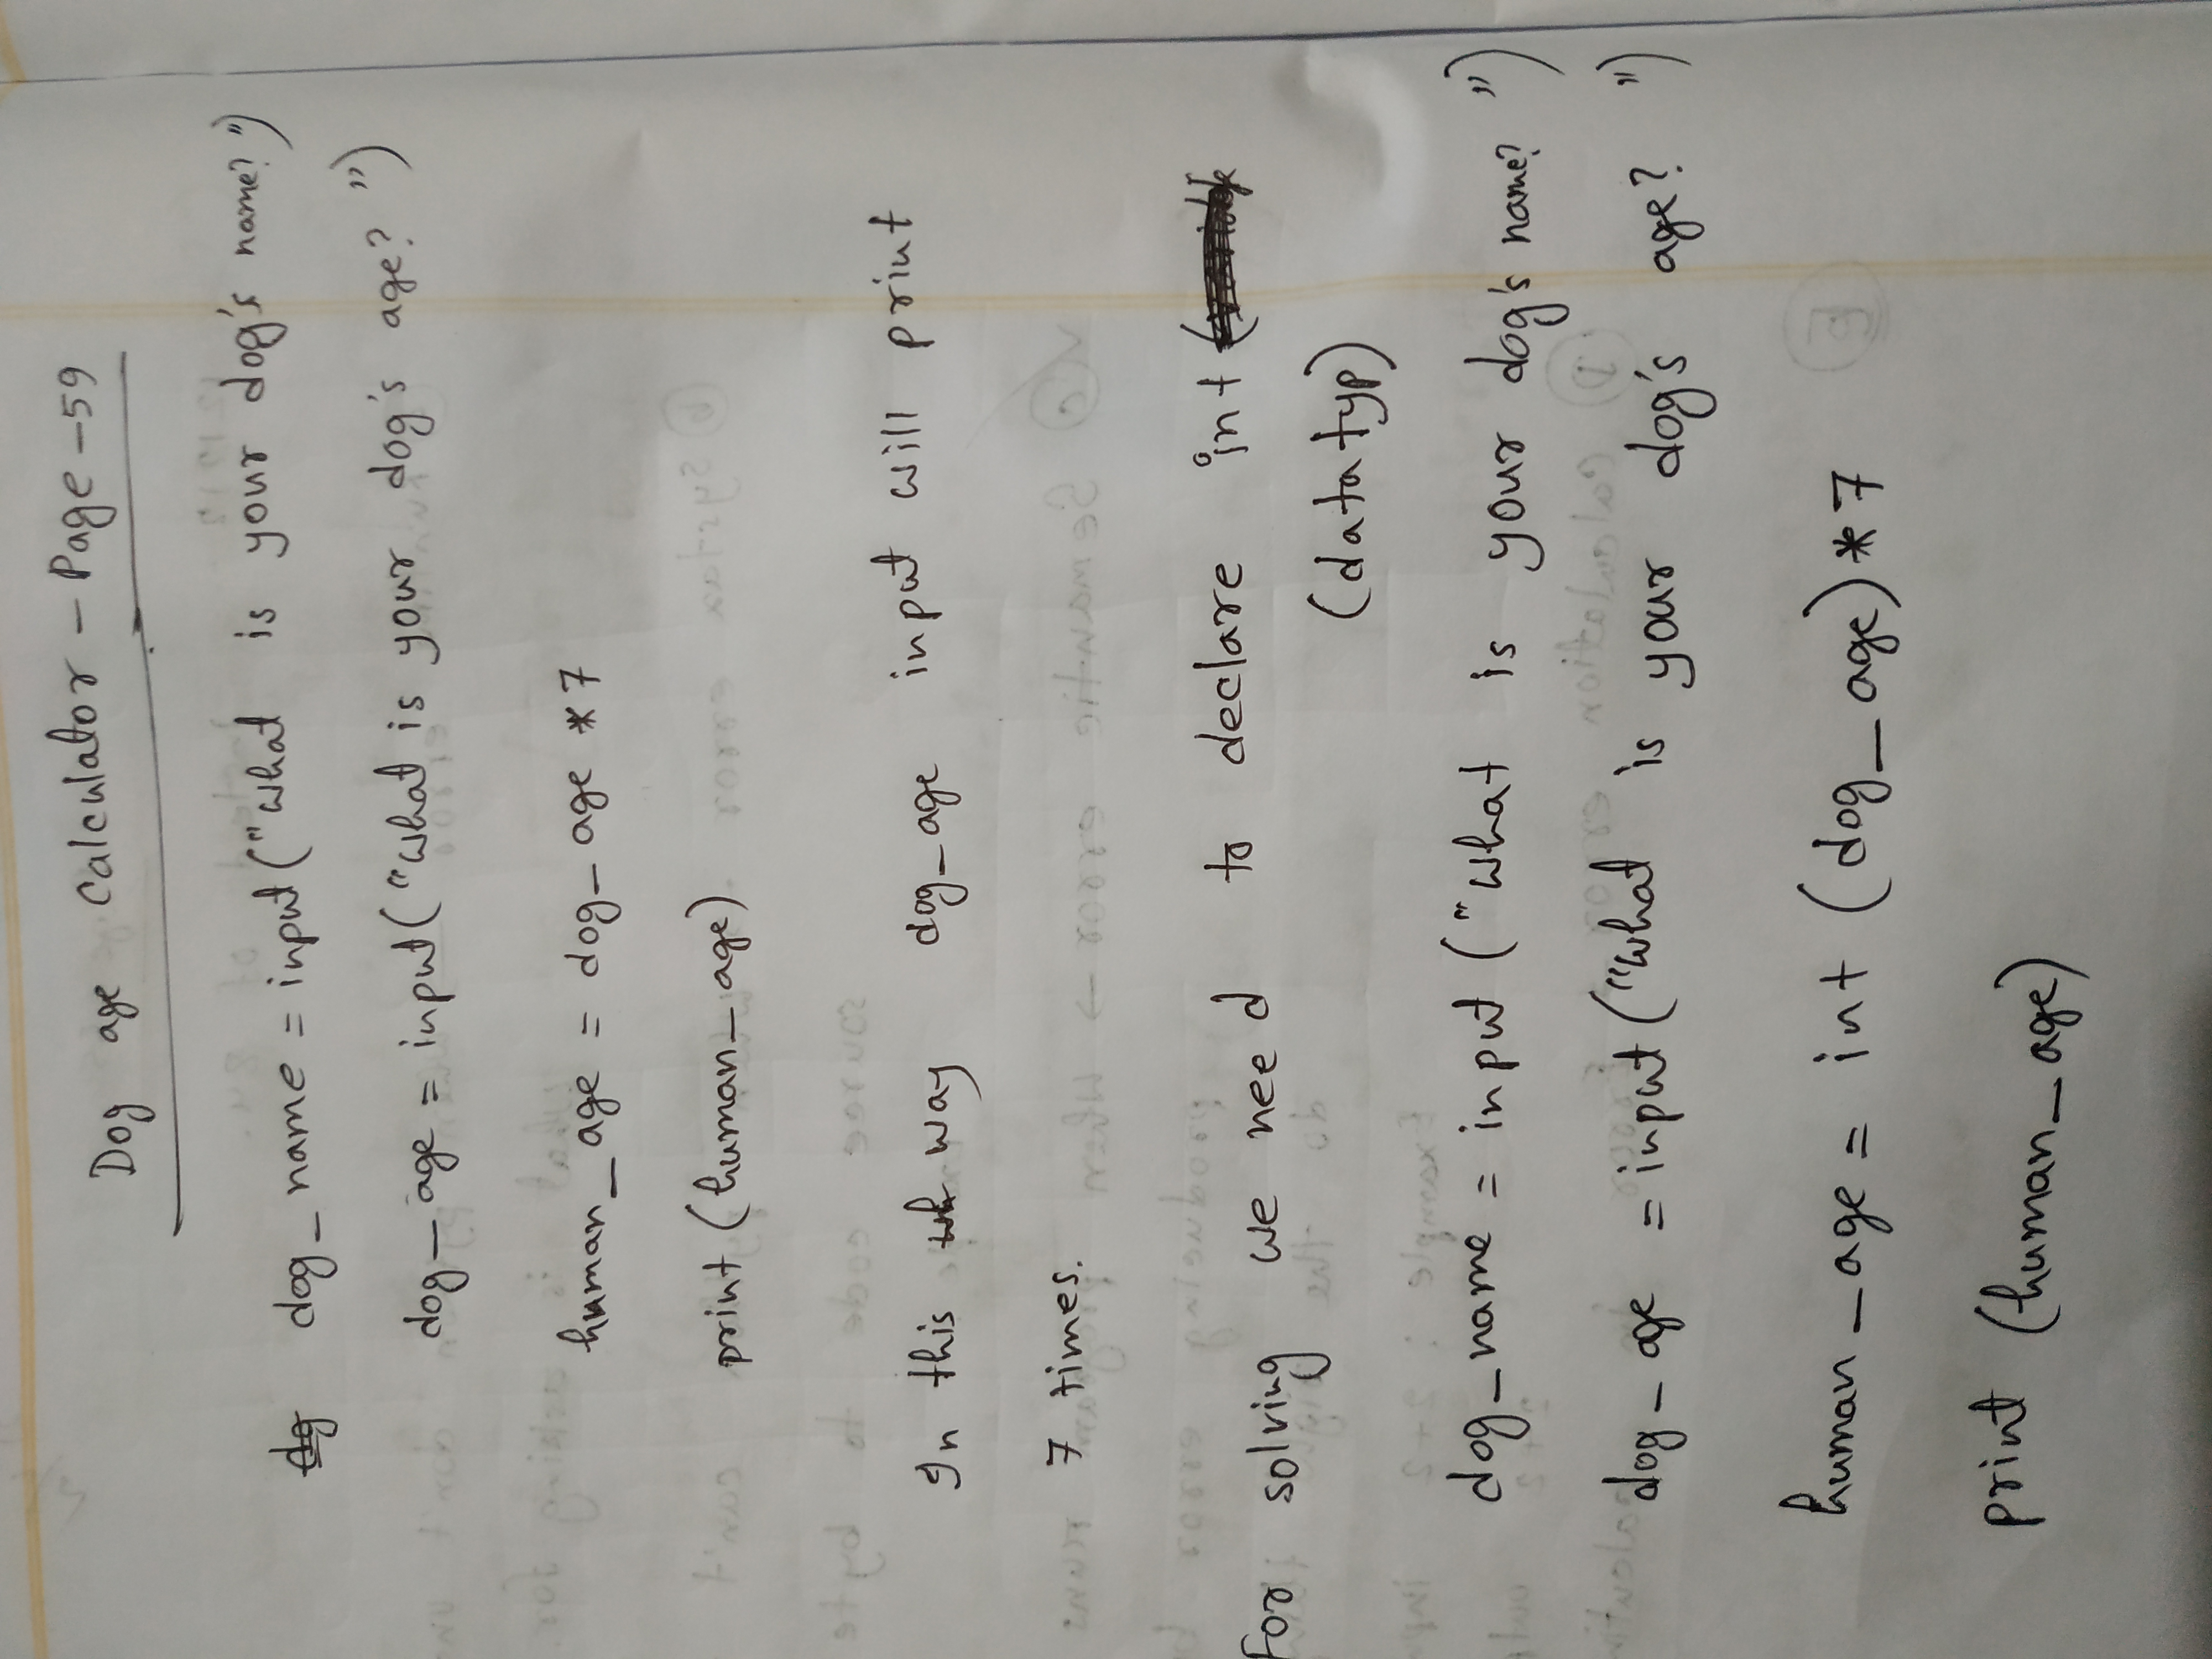 Dog age Calculator - Page -59
dog_name = input("What is your dog's name?")
dog_age = input("What is your dog's age? ")
human_age = dog_age *7
print (human_age)
In this way dog_age input will print
7 times.
For solving we need to declare int
(datatyp)
dog_name = input ("What is your dog's name? ")
dog_age = input ("What is your dog's age? ")
human_age = int (dog_age)*7
print (human_age)